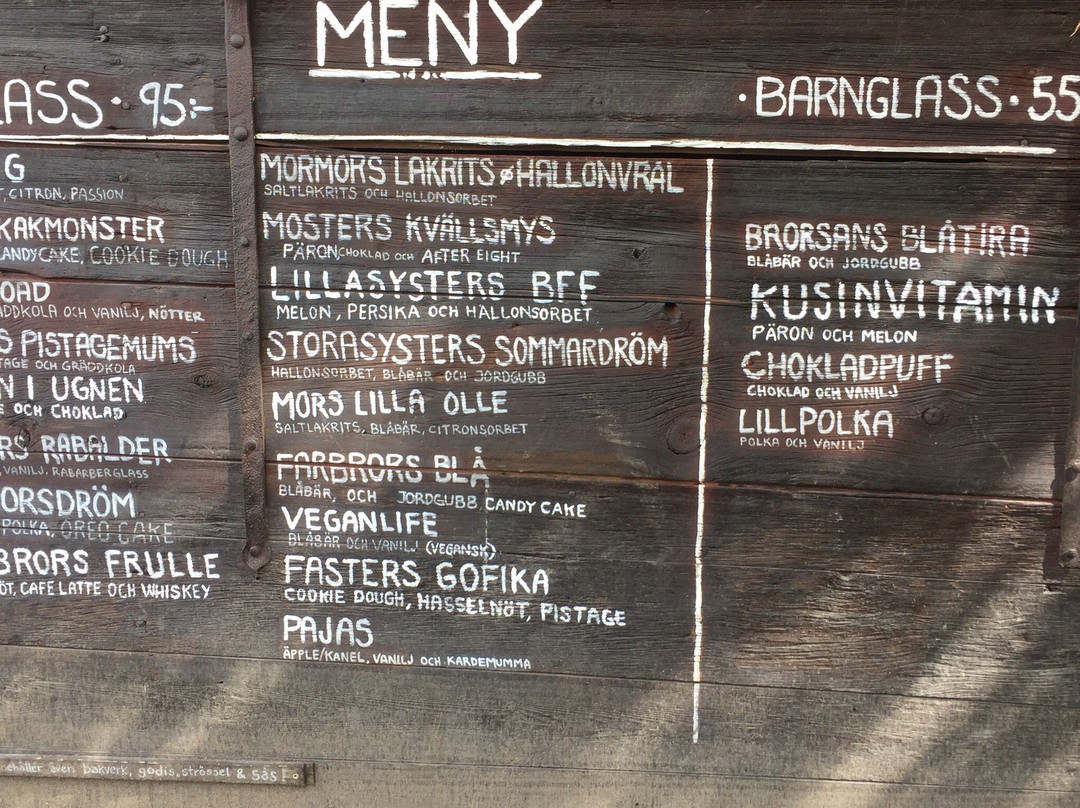 MENY
LASS · 95:-
· BARNGLASS · 55
G
, CITRON, PASSION
KAKMONSTER
CANDYCAKE, COOKIE DOUGH
OAD
ÄDDKOLA OCH VANILJ, NÖTTER
S PISTAGEMUMS
TAGE OCH GRÄDDKOLA
N I UGNEN
E OCH CHOKLAD
RS RABALDER
, VANILJ, RABARBERGLASS
ORSDRÖM
POLKA, OREO CAKE
BRORS FRULLE
ÖT, CAFE LATTE OCH WHISKEY
MORMORS LAKRITS & HALLONVRÅL
SALTLAKRITS OCH HALLONSORBET
MOSTERS KVÄLLSMYS
PÄRON, CHOKLAD OCH AFTER EIGHT
LILLASYSTERS BFF
MELON, PERSIKA OCH HALLONSORBET
STORASYSTERS SOMMARDRÖM
HALLONSORBET, BLÅBÄR OCH JORDGUBB
MORS LILLA OLLE
SALTLAKRITS, BLÅBÄR, CITRONSORBET
FARBRORS BLÅ
BLÅBÄR, OCH JORDGUBB, CANDY CAKE
VEGANLIFE
BLÅBÄR OCH VANILJ (VEGANSK)
FASTERS GOFIKA
COOKIE DOUGH, HASSELNÖT, PISTAGE
PAJAS
ÄPPLE/KANEL, VANILJ OCH KARDEMUMMA
BRORSANS BLÅTIRA
BLÅBÄR OCH JORDGUBB
KUSINVITAMIN
PÄRON OCH MELON
CHOKLADPUFF
CHOKLAD OCH VANILJ
LILLPOLKA
POLKA OCH VANILJ
nehåller även bakverk, godis, strössel & sås!